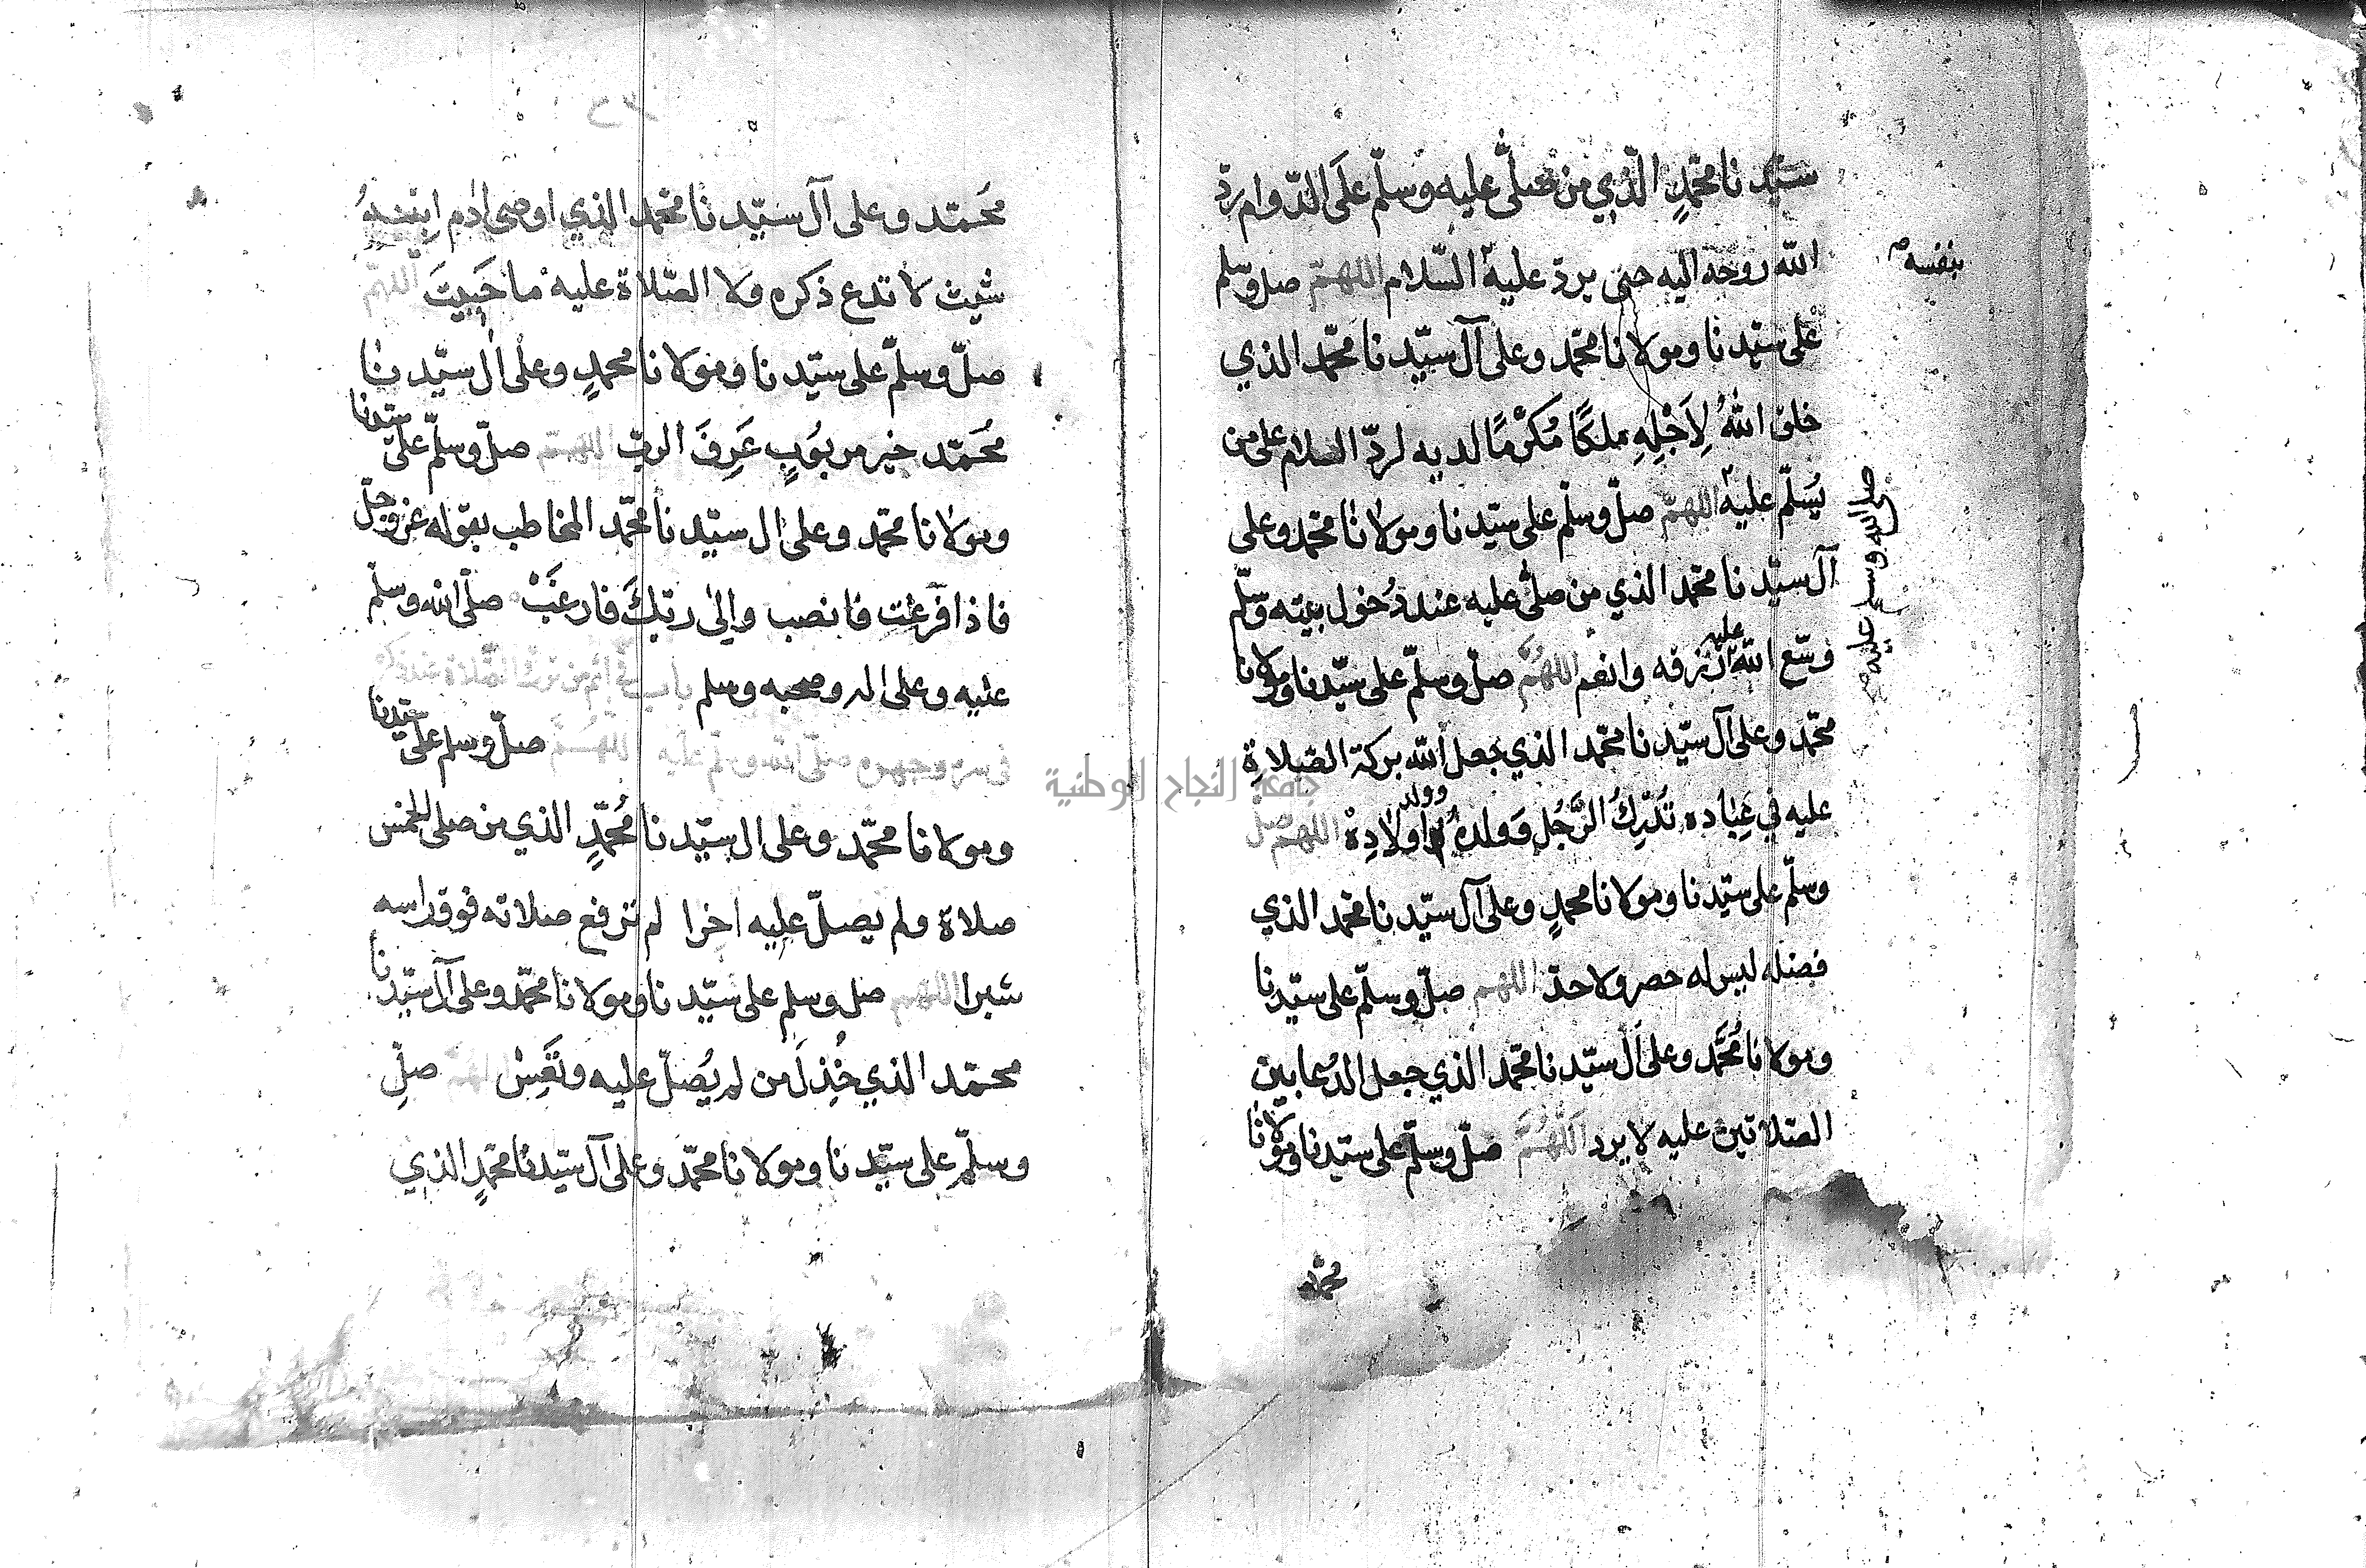 سيّدنا محمّدٍ الّذي من صلّى عليه وسلّم على الدّوام ردّ
الله روحه اليه حتى يردّ عليه السّلام اللهمّ صل وسلم
بنفسه
على سيّدنا ومولانا محمّد وعلى آل سيّدنا محمّد الذي
خلق اللهُ لِاَجْلِهِ ملكًا مُكَرَّمًا لديه لردّ السلام على من
يُسَلّم عليه اللهمّ صلّ وسلّم على سيّدنا ومولانا محمّد وعلى
صلى الله وسلم عليه
آل سيّدنا محمّد الذي من صلّى عليه عند دُخول بيته وسلّم
وسّع الله عليه رزقه وانعم اللهُمَّ صلّ وسلّم على سيّدنا ومولانا
محمّد وعلى آل سيّدنا محمّد الذي جعل الله بركة الصّلاةِ
عليه في عِبَاده تُدْرِكُ الرَّجُل وَولدهُ وولد اولادِهْ اللهمّ صلّ
وسلّم على سيّدنا ومولانا محمدٍ وعلى آل سيّدنا محمّد الذي
فضله ليس له حصر ولا حدّ اللهم صلّ وسلّم على سيّدنا
ومولانا مُحَمَّد وعلى آل سيّدنا محمّد الذي جعل الدعا بين
الصّلاتين عليه لا يرد اللهُمَّ صلّ وسلّم على سيّدنا ومولانا
محمّد
محَمّد وعلى آل سيّدنا محمّد الذي اوصى ادم ابنهُ
شيث لا تدع ذكره ولا الصّلاة عليه ما حَيِيتَ اللهمّ
صلّ وسلّم على سيّدنا ومولانا محمدٍ وعلى ال سيّدنا
مُحَمّد خير مربُوبٍ عَرِفَ الربّ اللهمّ صلّ وسلّم على سيّدنا
ومولانا محمّد وعلى ال سيّدنا محمّد المخاطب بقوله عز وجلّ
فاذا فرغت فانصب وإلى ربّكَ فارغَبْ صلّى الله وسلّم
عليه وعلى اله وصحبه وسلم باب في
صلّ وسلم على سيّدنا
ومولانا محمّد وعلى ال سيّدنا مُحمّدٍ الذي من صلى الخمس
صلاة ولم يصلّ عليه اخرا لم ترفع صلاته فوق راسه
شبرا اللهم صل وسلم على سيّدنا ومولانا محمّد وعلى آل سيّدنا
محمّد الذي خُذِلَ من لم يُصلّ عليه وتَعِسْ صلِّ
وسلّم على سيّدنا ومولانا محمّد وعلى آل سيّدنا محمّدٍ الذي
جامعة النجاح الوطنية